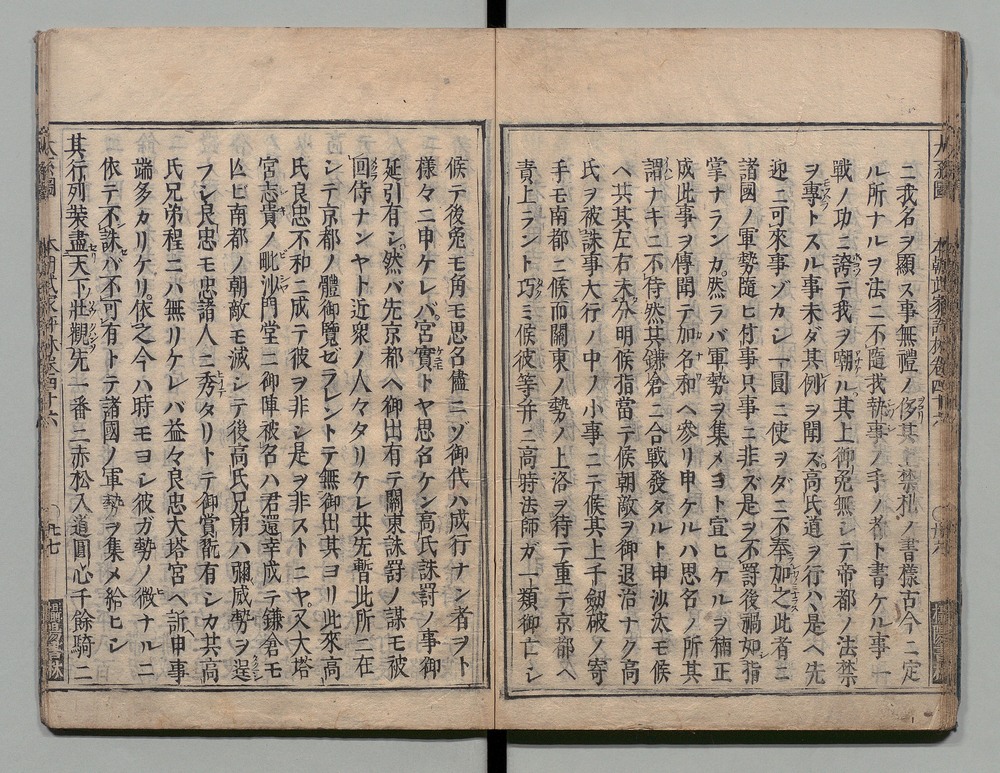 ニ我名ヲ顯ス事無禮ノ侈其上禁札ノ書樣古今ニ定
ル所ナルヲ法ニ不隨我執事ノ手ノ者ト書ケル事一
戰ノ功ニ誇テ我ヲ嘲ル其上御免無シテ帝都ノ法禁
ヲ專トスル事未ダ其例ヲ聞ズ高氏道ヲ行ハヽ是ヘ先
迎ニ可來事ゾカシ一圓ニ使ヲダニ不奉加之此者ニ
諸國ノ軍勢隨ヒ付事只事ニ非ズ是ヲ不罸後禍如指
掌ナランカ然ラバ軍勢ヲ集メヨト宣ヒケルヲ楠正
成此事ヲ傳聞テ加名和ヘ參リ申ケルハ思名ノ所其
謂ナキニ不待然其鎌倉ニ合戰發タルト申沙汰モ候
ヘ共其左右未分明候指當テ候朝敵ヲ御退治ナク高
氏ヲ被誅事大行ノ中ノ小事ニテ候其上千劔破ノ寄
手モ南都ニ候而關東ノ勢ノ上洛ヲ待テ重テ京都ヘ
責上ラント巧ミ候彼等并ニ高時法師ガ一類御亡シ
候テ後兔モ角モ思名儘ニゾ御代ハ成行ナン者ヲト
樣々ニ申ケレバ宮實トヤ思名ケン高氏誅罸ノ事御
延引有シ然バ先京都ヘ御出有テ關東誅罸ノ謀モ被
回侍ナンヤト近衆ノ人々タリケレ共先暫此所ニ在
シテ京都ノ體御覽ゼラレントテ無御出其ヨリ此來高
氏良忠不和ニ成テ彼ヲ非シ是ヲ非ストニヤ又大塔
宮志貴ノ毗沙門堂ニ御陣被名ハ君還幸成テ鎌倉モ
亡ヒ南都ノ朝敵モ滅シテ後高氏兄弟ハ彌威勢ヲ逞
フシ良忠モ忠諸人ニ秀タリトテ御賞翫有シカ共高
氏兄弟程ニハ無リケレバ益々良忠大塔宮ヘ訴申事
端多カリケリ依之今ハ時モヨシ彼ガ勢ノ微ナルニ
依テ不誅バ不可有トテ諸國ノ軍勢ヲ集メ給ヒシ
其行列裝盡天下壯觀先一番ニ赤松入道圓心千餘騎ニ